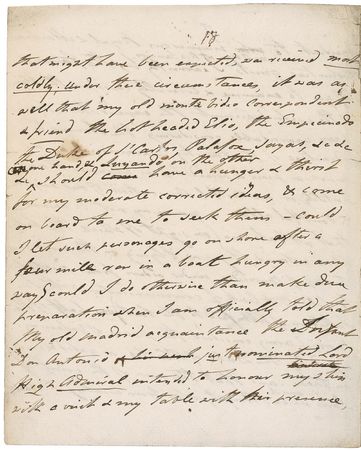 18
that might have been expected, was received most
coldly. Under these circumstances, it was as
well that my old monte Video correspondent
& friend the hot headed Elio, the Empecinado
the Duke of Sn Carlos, Palafox Sayas, &c &c
on one hand, & Luyando on the other
& should come have a hunger & thirst
for my moderate corrected ideas, & come
on board to me to seek them – could
I let such personages go on shore after a
four mile row in a boat hungry in any
way? could I do otherwise than make due
preparation when I am officially told that
My old madrid acquaintance the Infant
Don Antonio just nominated Lord
High Admiral intended to honour my ship
with a visit & my table with his presence,